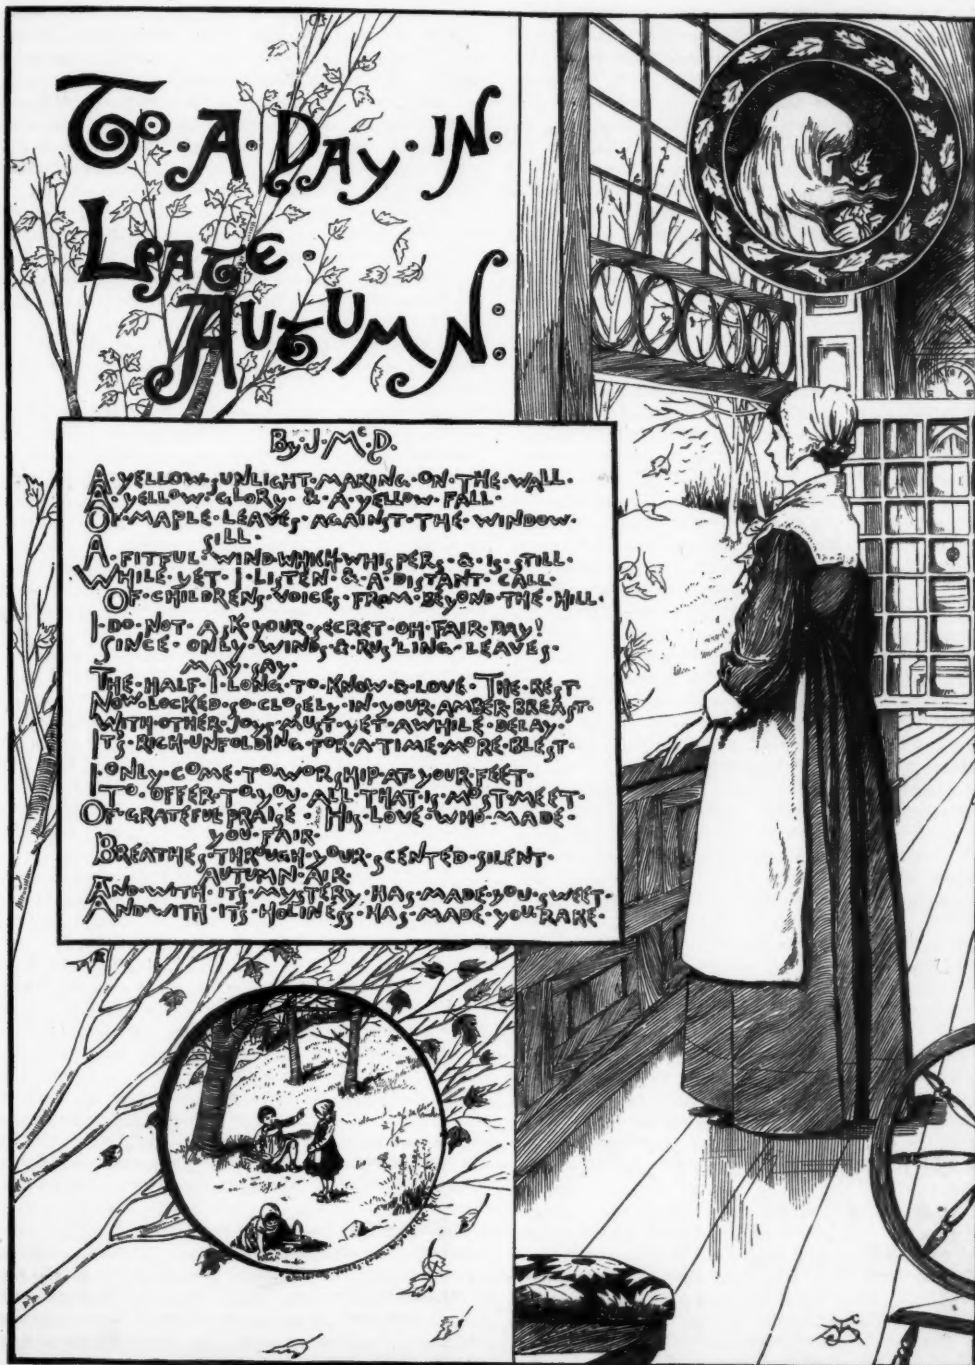 TO·A·DAY·IN·
LATE·
AUTUMN:
By·J·McD.
A·YELLOW·SUNLIGHT·MAKING·ON·THE·WALL·
A·YELLOW·GLORY·&·A·YELLOW·FALL·
OF·MAPLE·LEAVES·AGAINST·THE·WINDOW·
SILL·
A·FITFUL·WIND·WHICH·WHISPERS·&·IS·STILL·
WHILE·YET·I·LISTEN·&·A·DISTANT·CALL·
OF·CHILDRENS·VOICES·FROM·BEYOND·THE·HILL·
I·DO·NOT·ASK·YOUR·SECRET·OH·FAIR·DAY!
SINCE·ONLY·WINDS·&·RUS'LING·LEAVES·
MAY·SAY·
THE·HALF·I·LONG·TO·KNOW·&·LOVE·THE·REST
NOW·LOCKED·SO·CLOSELY·IN·YOUR·AMBER·BREAST·
WITH·OTHER·JOYS·MUST·YET·AWHILE·DELAY·
IT'S·RICH·UNFOLDING·FOR·A·TIME·MORE·BLEST·
I·ONLY·COME·TO·WORSHIP·AT·YOUR·FEET·
TO·OFFER·TO·YOU·ALL·THAT·IS·MOST·MEET·
OF·GRATEFUL·PRAISE·HIS·LOVE·WHO·MADE·
YOU·FAIR·
BREATHES·THROUGH·YOUR·SCENTED·SILENT·
AUTUMN·AIR·
AND·WITH·ITS·MYSTERY·HAS·MADE·YOU·SWEET·
AND·WITH·ITS·HOLINESS·HAS·MADE·YOU·RARE·